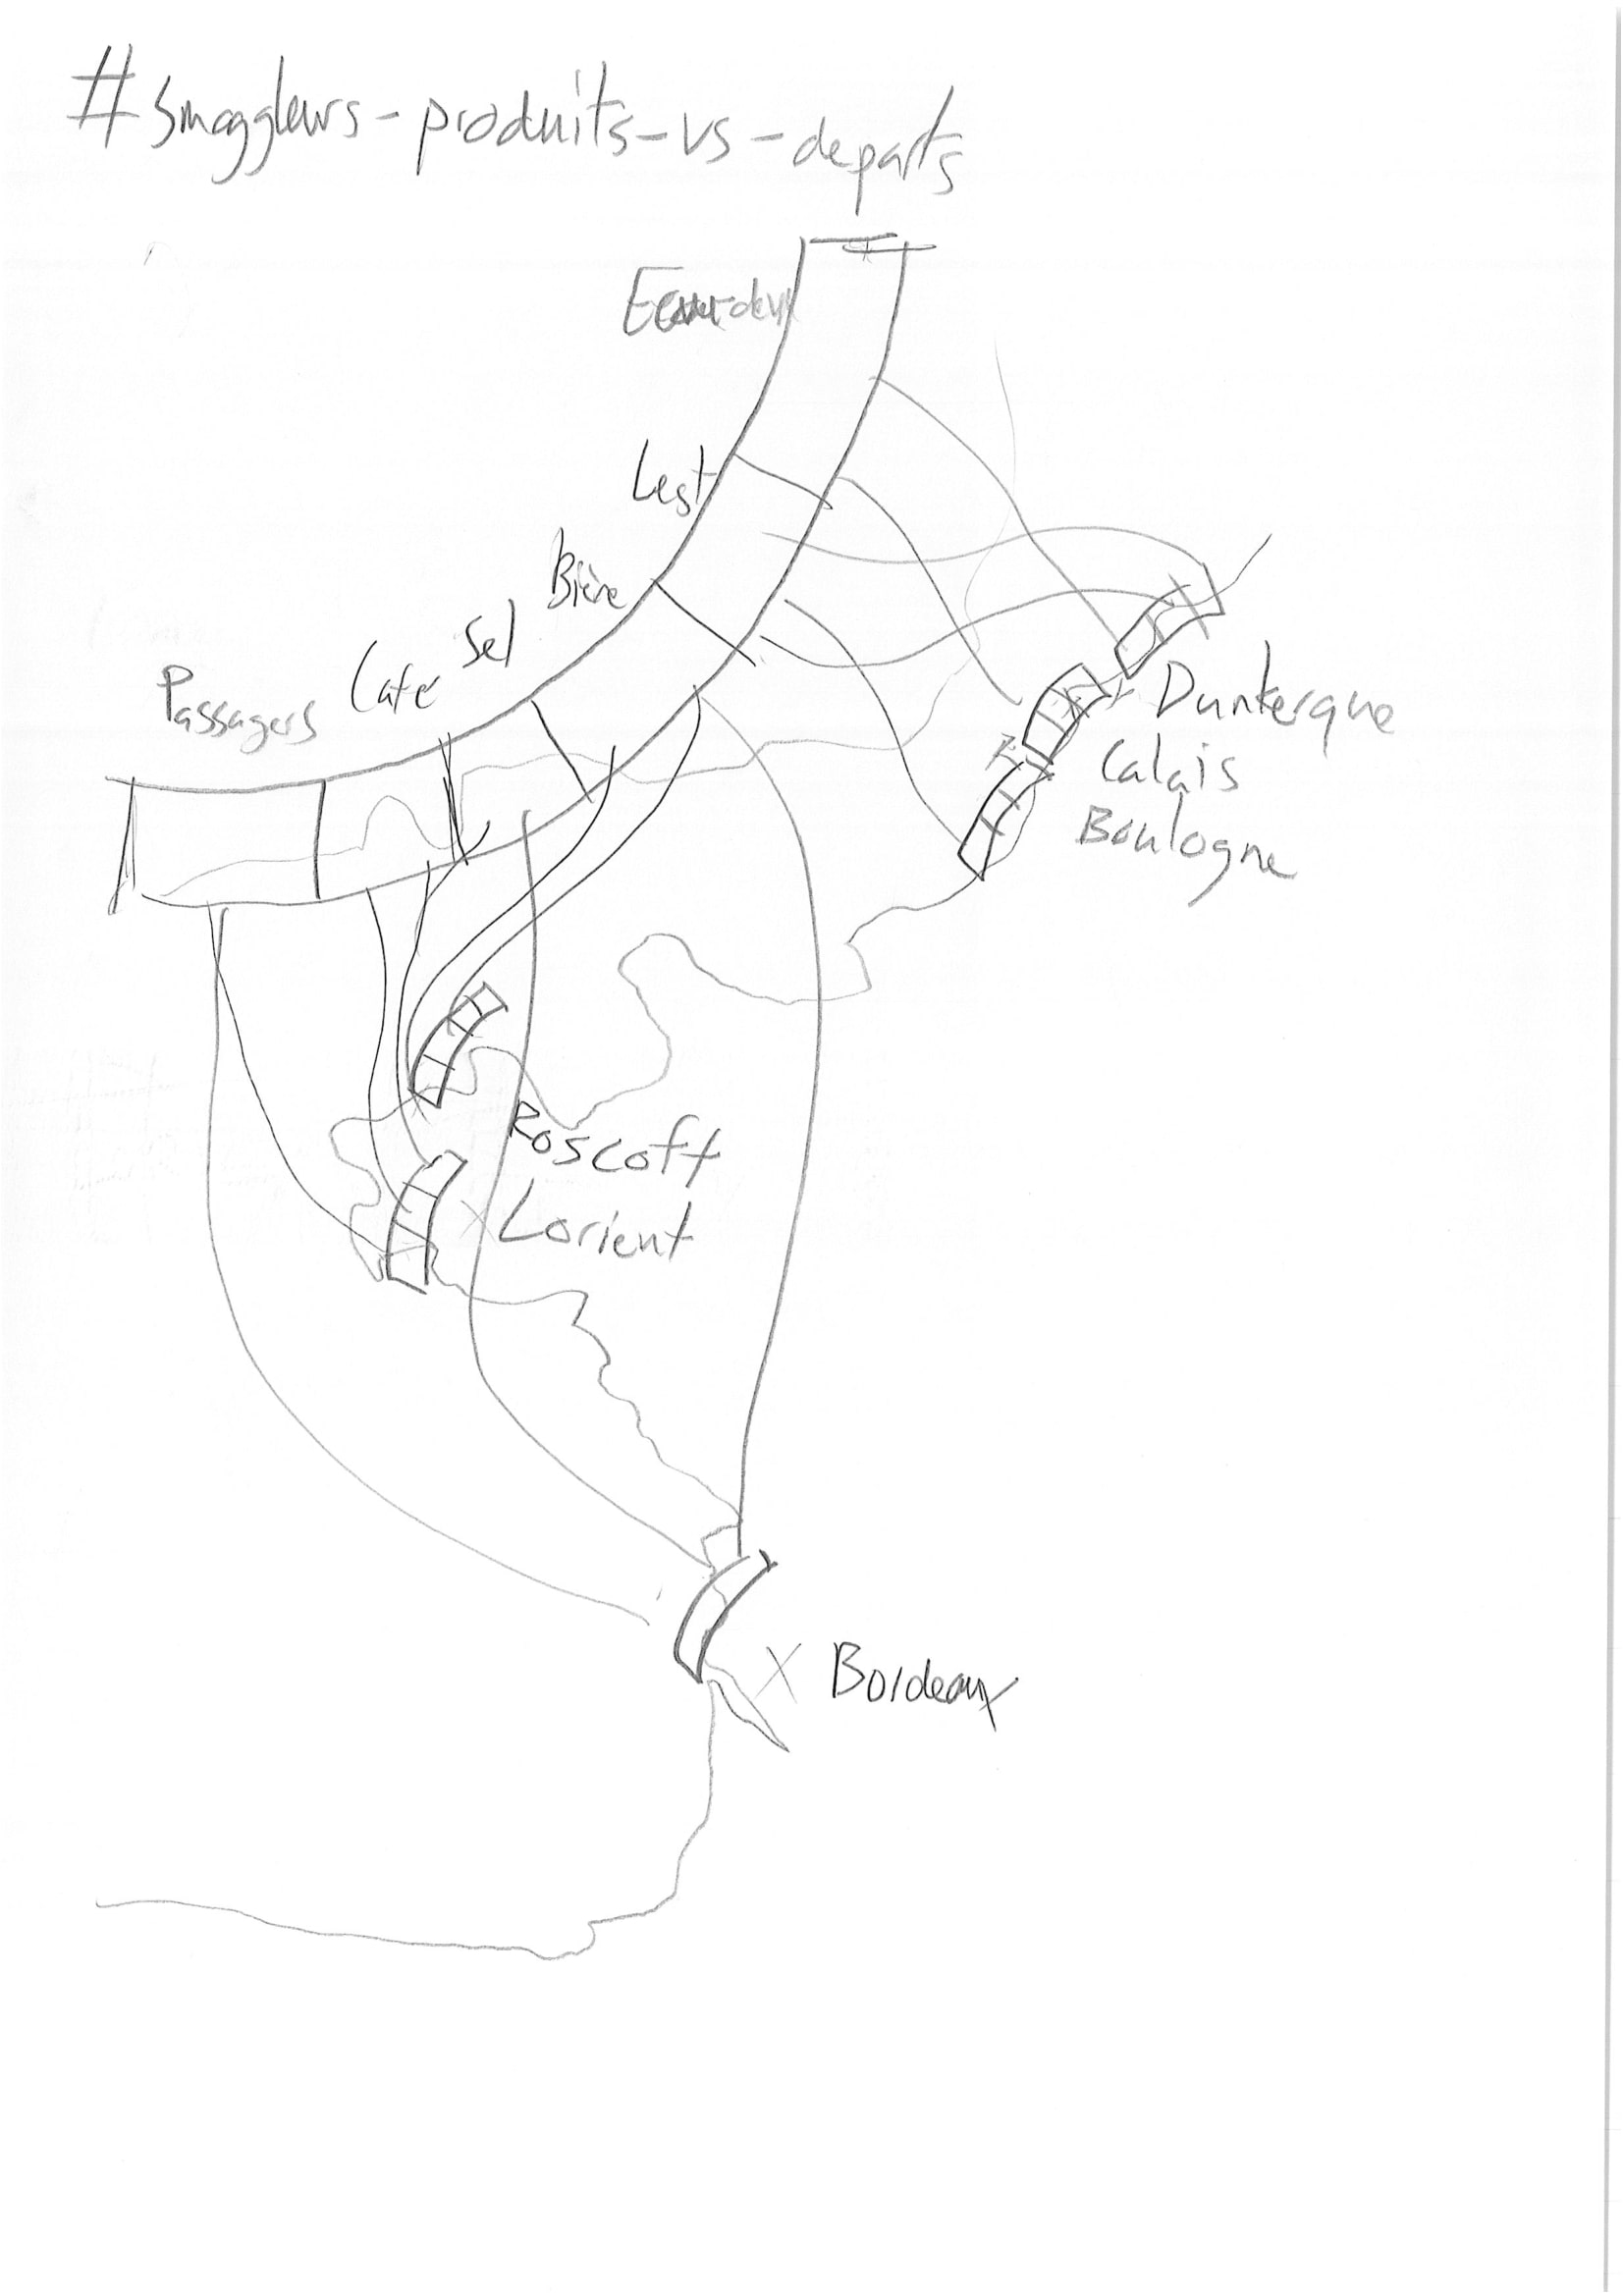 # smoggleurs-produits-vs-departs
Lest
Bière
Sel
Cafe
Passagers
Dunkerque
Calais
Boulogne
Roscoff
Lorient
X Bordeaux